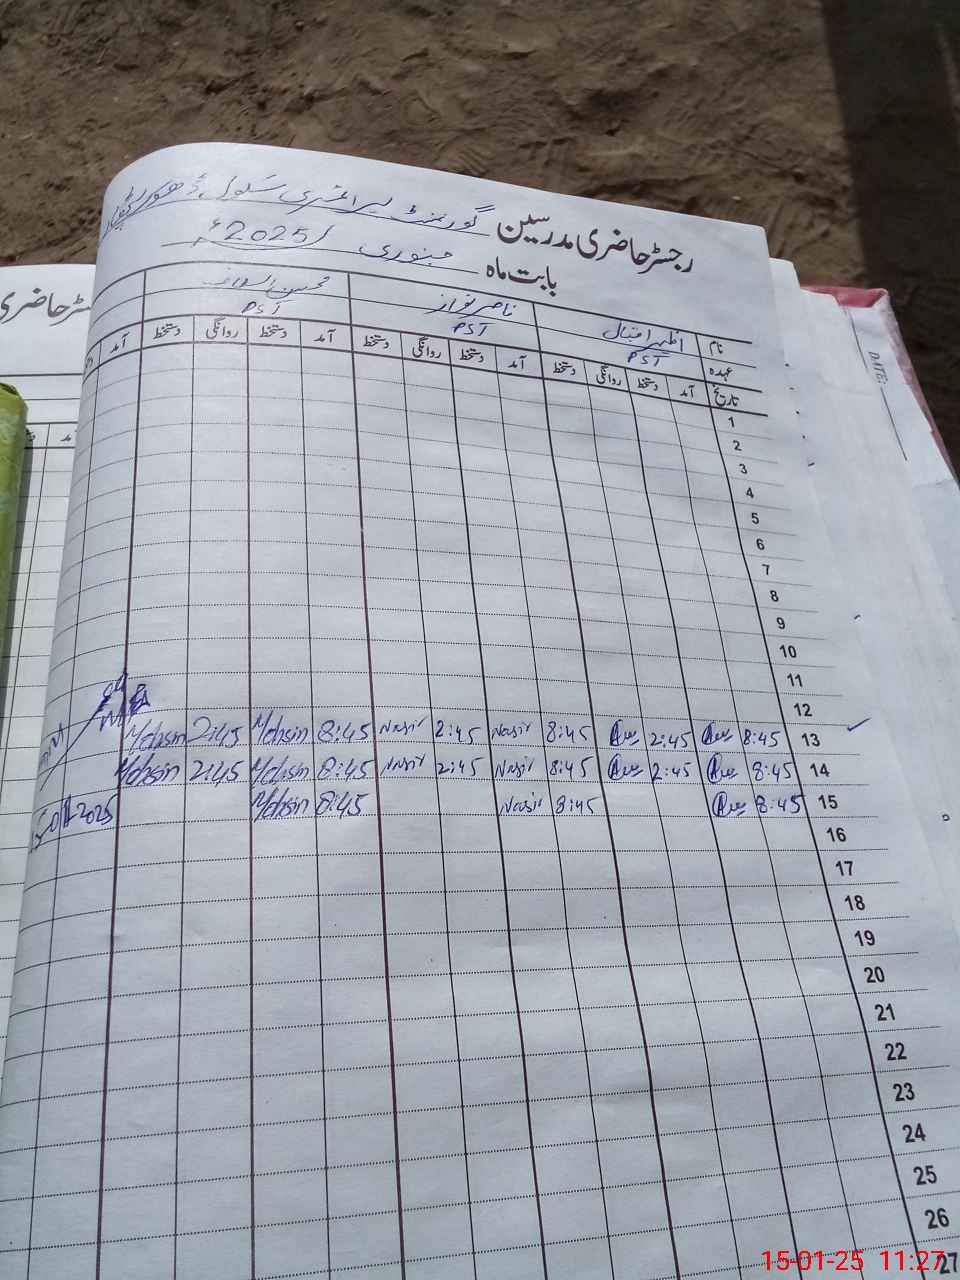 رجسٹر حاضری مدرسین گورنمنٹ پرائمری سکول
بابت ماہ جنوری 2025ء
نام اظہر اقبال ناصر نواز محسن
عہدہ PST PST PST
تاریخ آمد دستخط روانگی دستخط آمد دستخط روانگی دستخط آمد دستخط روانگی دستخط آمد
1
2
3
4
5
6
7
8
9
10
11
12
Mohsin 2:45 Mohsin 8:45 Nasir 2:45 Nasir 8:45 2:45 8:45 13
Mohsin 2:45 Mohsin 8:45 Nasir 2:45 Nasir 8:45 2:45 8:45 14
Mohsin 8:45 Nasir 8:45 8:45 15
16
17
18
19
20
21
22
23
24
25
26
27
DATE:
15-01-25 11:27